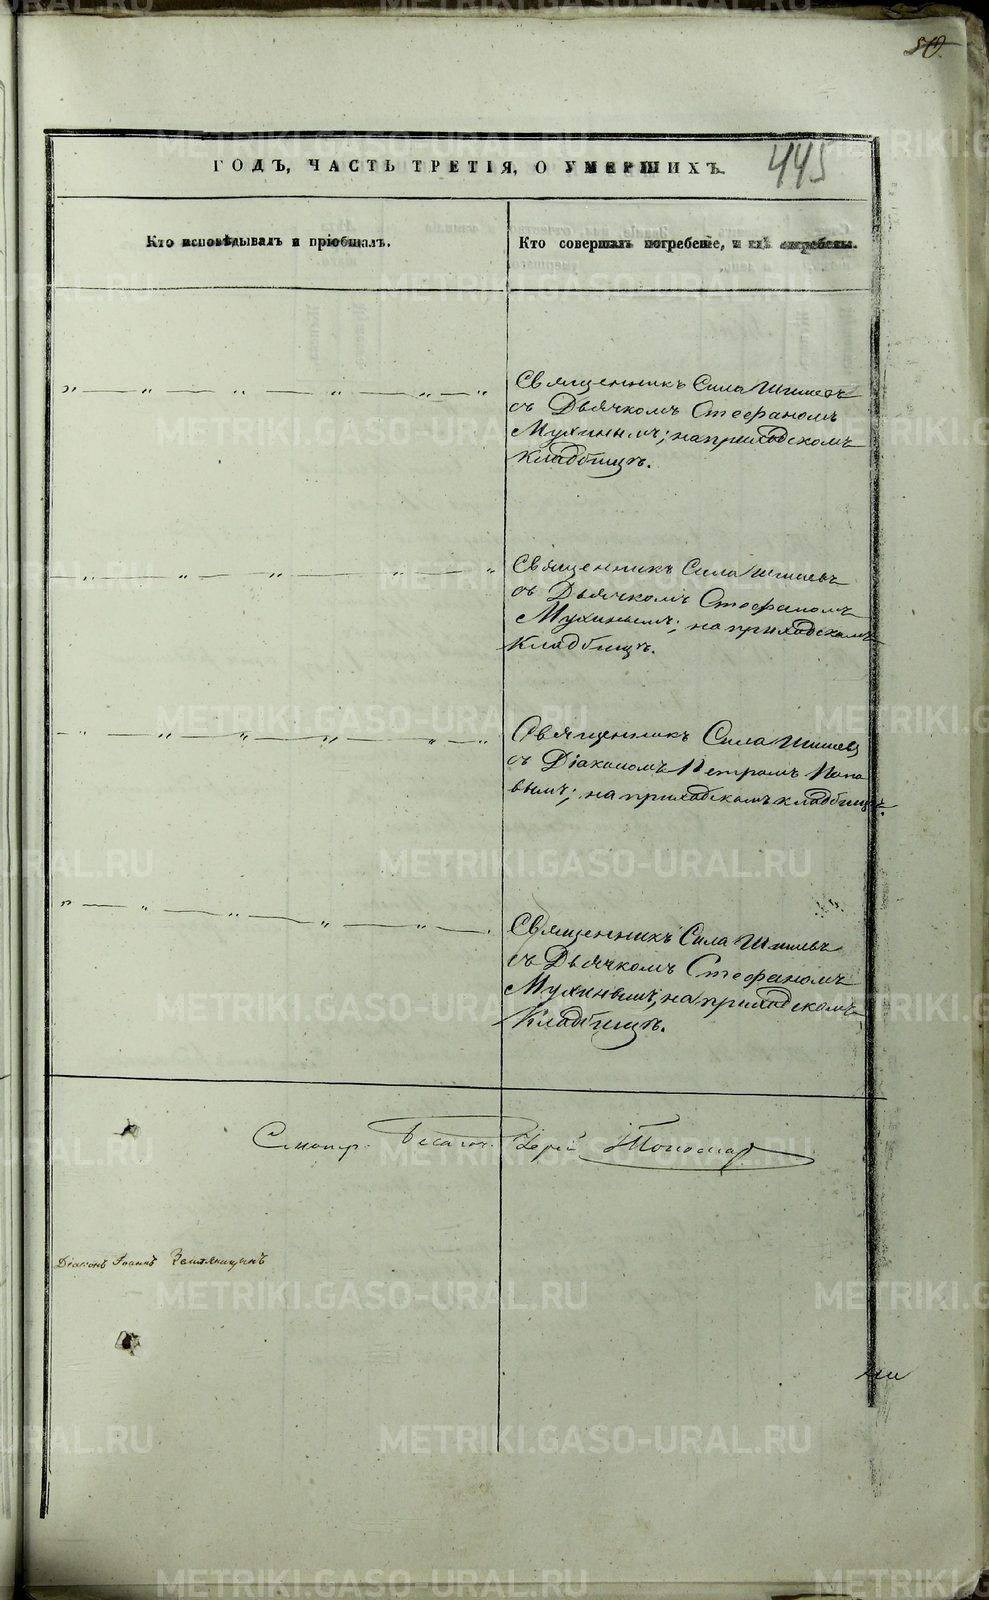 50.
445
ГОДЪ, ЧАСТЬ ТРЕТІЯ, О УМЕРШИХЪ.
Кто исповѣдывалъ и пріобщалъ.
Кто совершалъ погребеніе, и гдѣ погребены.
Священникъ Сила Шишевъ
съ Дьячкомъ Стефаномъ
Мухинымъ; на приходскомъ
кладбищѣ.
Священникъ Сила Шишевъ
съ Дьячкомъ Стефаномъ
Мухинымъ; на приходскомъ
кладбищѣ.
Священникъ Сила Шишевъ
съ Діакономъ Петромъ Попо
вымъ; на приходскомъ кладбищѣ.
Священникъ Сила Шишевъ
съ Дьячкомъ Стефаномъ
Мухинымъ, на приходскомъ
кладбищѣ.
Смотр. Іерей
Діаконъ Іоаннъ
METRIKI.GASO-URAL.RU